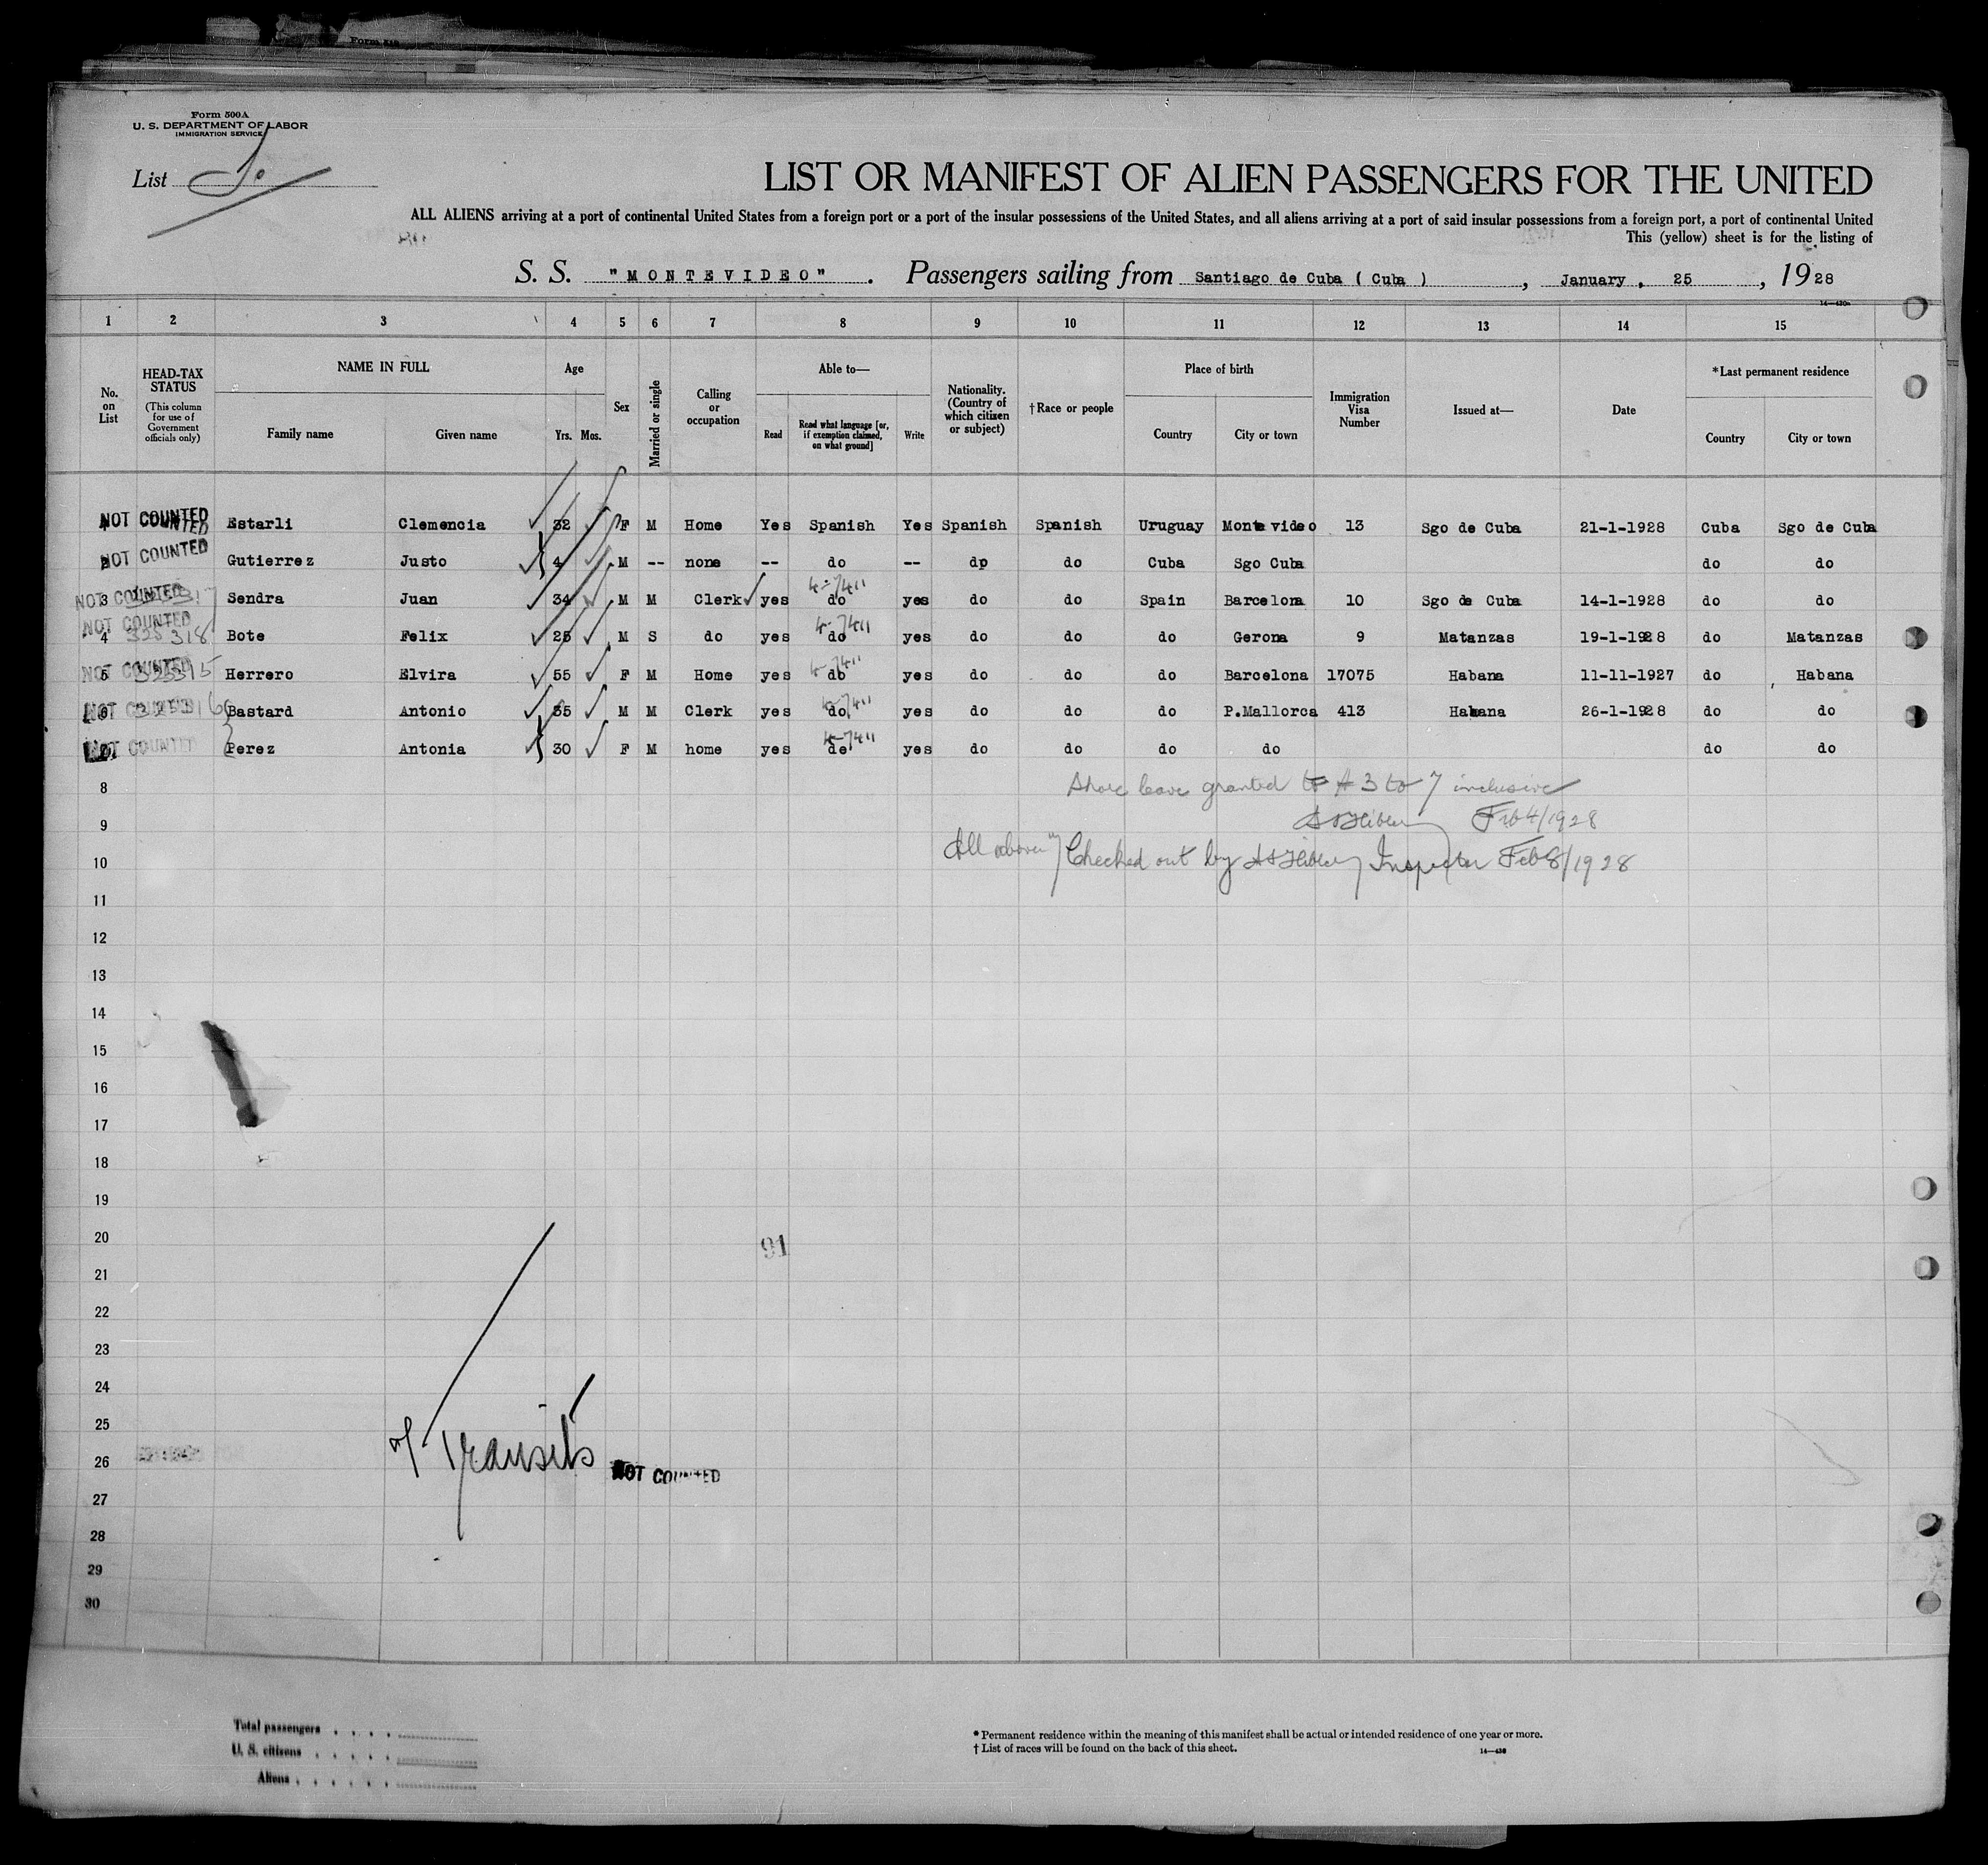 Form 500A
U. S. DEPARTMENT OF LABOR
IMMIGRATION SERVICE
List
LIST OR MANIFEST OF ALIEN PASSENGERS FOR THE UNITED
ALL ALIENS arriving at a port of continental United States from a foreign port or a port of the insular possessions of the United States, and all aliens arriving at a port of said insular possessions from a foreign port, a port of continental United
This (yellow) sheet is for the listing of
S. S. "MONTEVIDEO" . Passengers sailing from Santiago de Cuba ( Cuba ) , January , 25 , 1928
1 2 3 4 5 6 7 8 9 10 11 12 13 14 15
No. on List
HEAD-TAX STATUS (This column for use of Government officials only)
NAME IN FULL
Family name Given name
Age
Yrs. Mos.
Sex
Married or single
Calling or occupation
Able to—
Read
Read what language [or, if exemption claimed, on what ground]
Write
Nationality. (Country of which citizen or subject)
†Race or people
Place of birth
Country City or town
Immigration Visa Number
Issued at—
Date
*Last permanent residence
Country City or town
NOT COUNTED Estarli Clemencia 32 F M Home Yes Spanish Yes Spanish Spanish Uruguay Montevideo 13 Sgo de Cuba 21-1-1928 Cuba Sgo de Cuba
NOT COUNTED Gutierrez Justo 4 M -- none -- do -- dp do Cuba Sgo Cuba do do
3 NOT COUNTED Sendra Juan 34 M M Clerk yes do yes do do Spain Barcelona 10 Sgo de Cuba 14-1-1928 do do
4 NOT COUNTED 325318 Bote Felix 25 M S do yes do yes do do do Gerona 9 Matanzas 19-1-1928 do Matanzas
5 NOT COUNTED Herrero Elvira 55 F M Home yes do yes do do do Barcelona 17075 Habana 11-11-1927 do Habana
6 NOT COUNTED Bastard Antonio 35 M M Clerk yes do yes do do do P.Mallorca 413 Habana 26-1-1928 do do
NOT COUNTED Perez Antonia 30 F M home yes de yes do do do do do do
8 Shore leave granted to # 3 to 7 inclusive
9 Feb 4/1928
10 All above Checked out by Inspector Feb 8/1928
11
12
13
14
15
16
17
18
19
20 91
21
22
23
24
25
26 Transits NOT COUNTED
27
28
29
30
Total passengers . . . .
U. S. citizens . . . . .
Aliens . . . . . .
* Permanent residence within the meaning of this manifest shall be actual or intended residence of one year or more.
† List of races will be found on the back of this sheet.